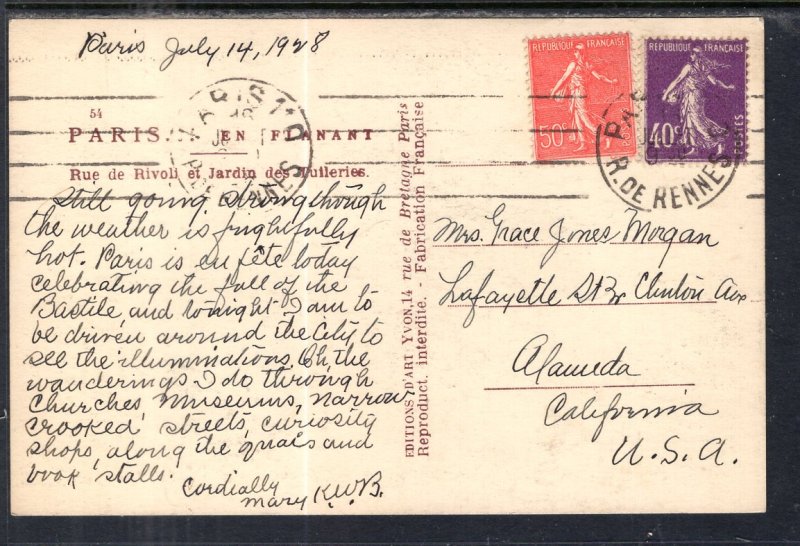 Paris July 14, 1928
54
PARIS. EN FLANANT
Rue de Rivoli et Jardin des Tuileries.
Still going strong though
the weather is frightfully
hot. Paris is en fête today
celebrating the fall of the
Bastile and tonight I am to
be driven around the city to
see the illuminations. Oh the
wanderings I do through
Churches Museums, narrow
crooked streets, curiosity
shops, along the quais and
book stalls.
Cordially
Mary K.W.B.
EDITIONS D'ART YVON, 14 rue de Bretagne Paris
Reproduct. interdite. - Fabrication Française
REPUBLIQUE FRANÇAISE
50c POSTES
REPUBLIQUE FRANÇAISE
40c POSTES
PARIS
R. DE RENNES
PARIS
R. DE RENNES
Mrs. Grace Jones Morgan
Lafayette St Clinton Ave
Alameda
California
U.S.A.